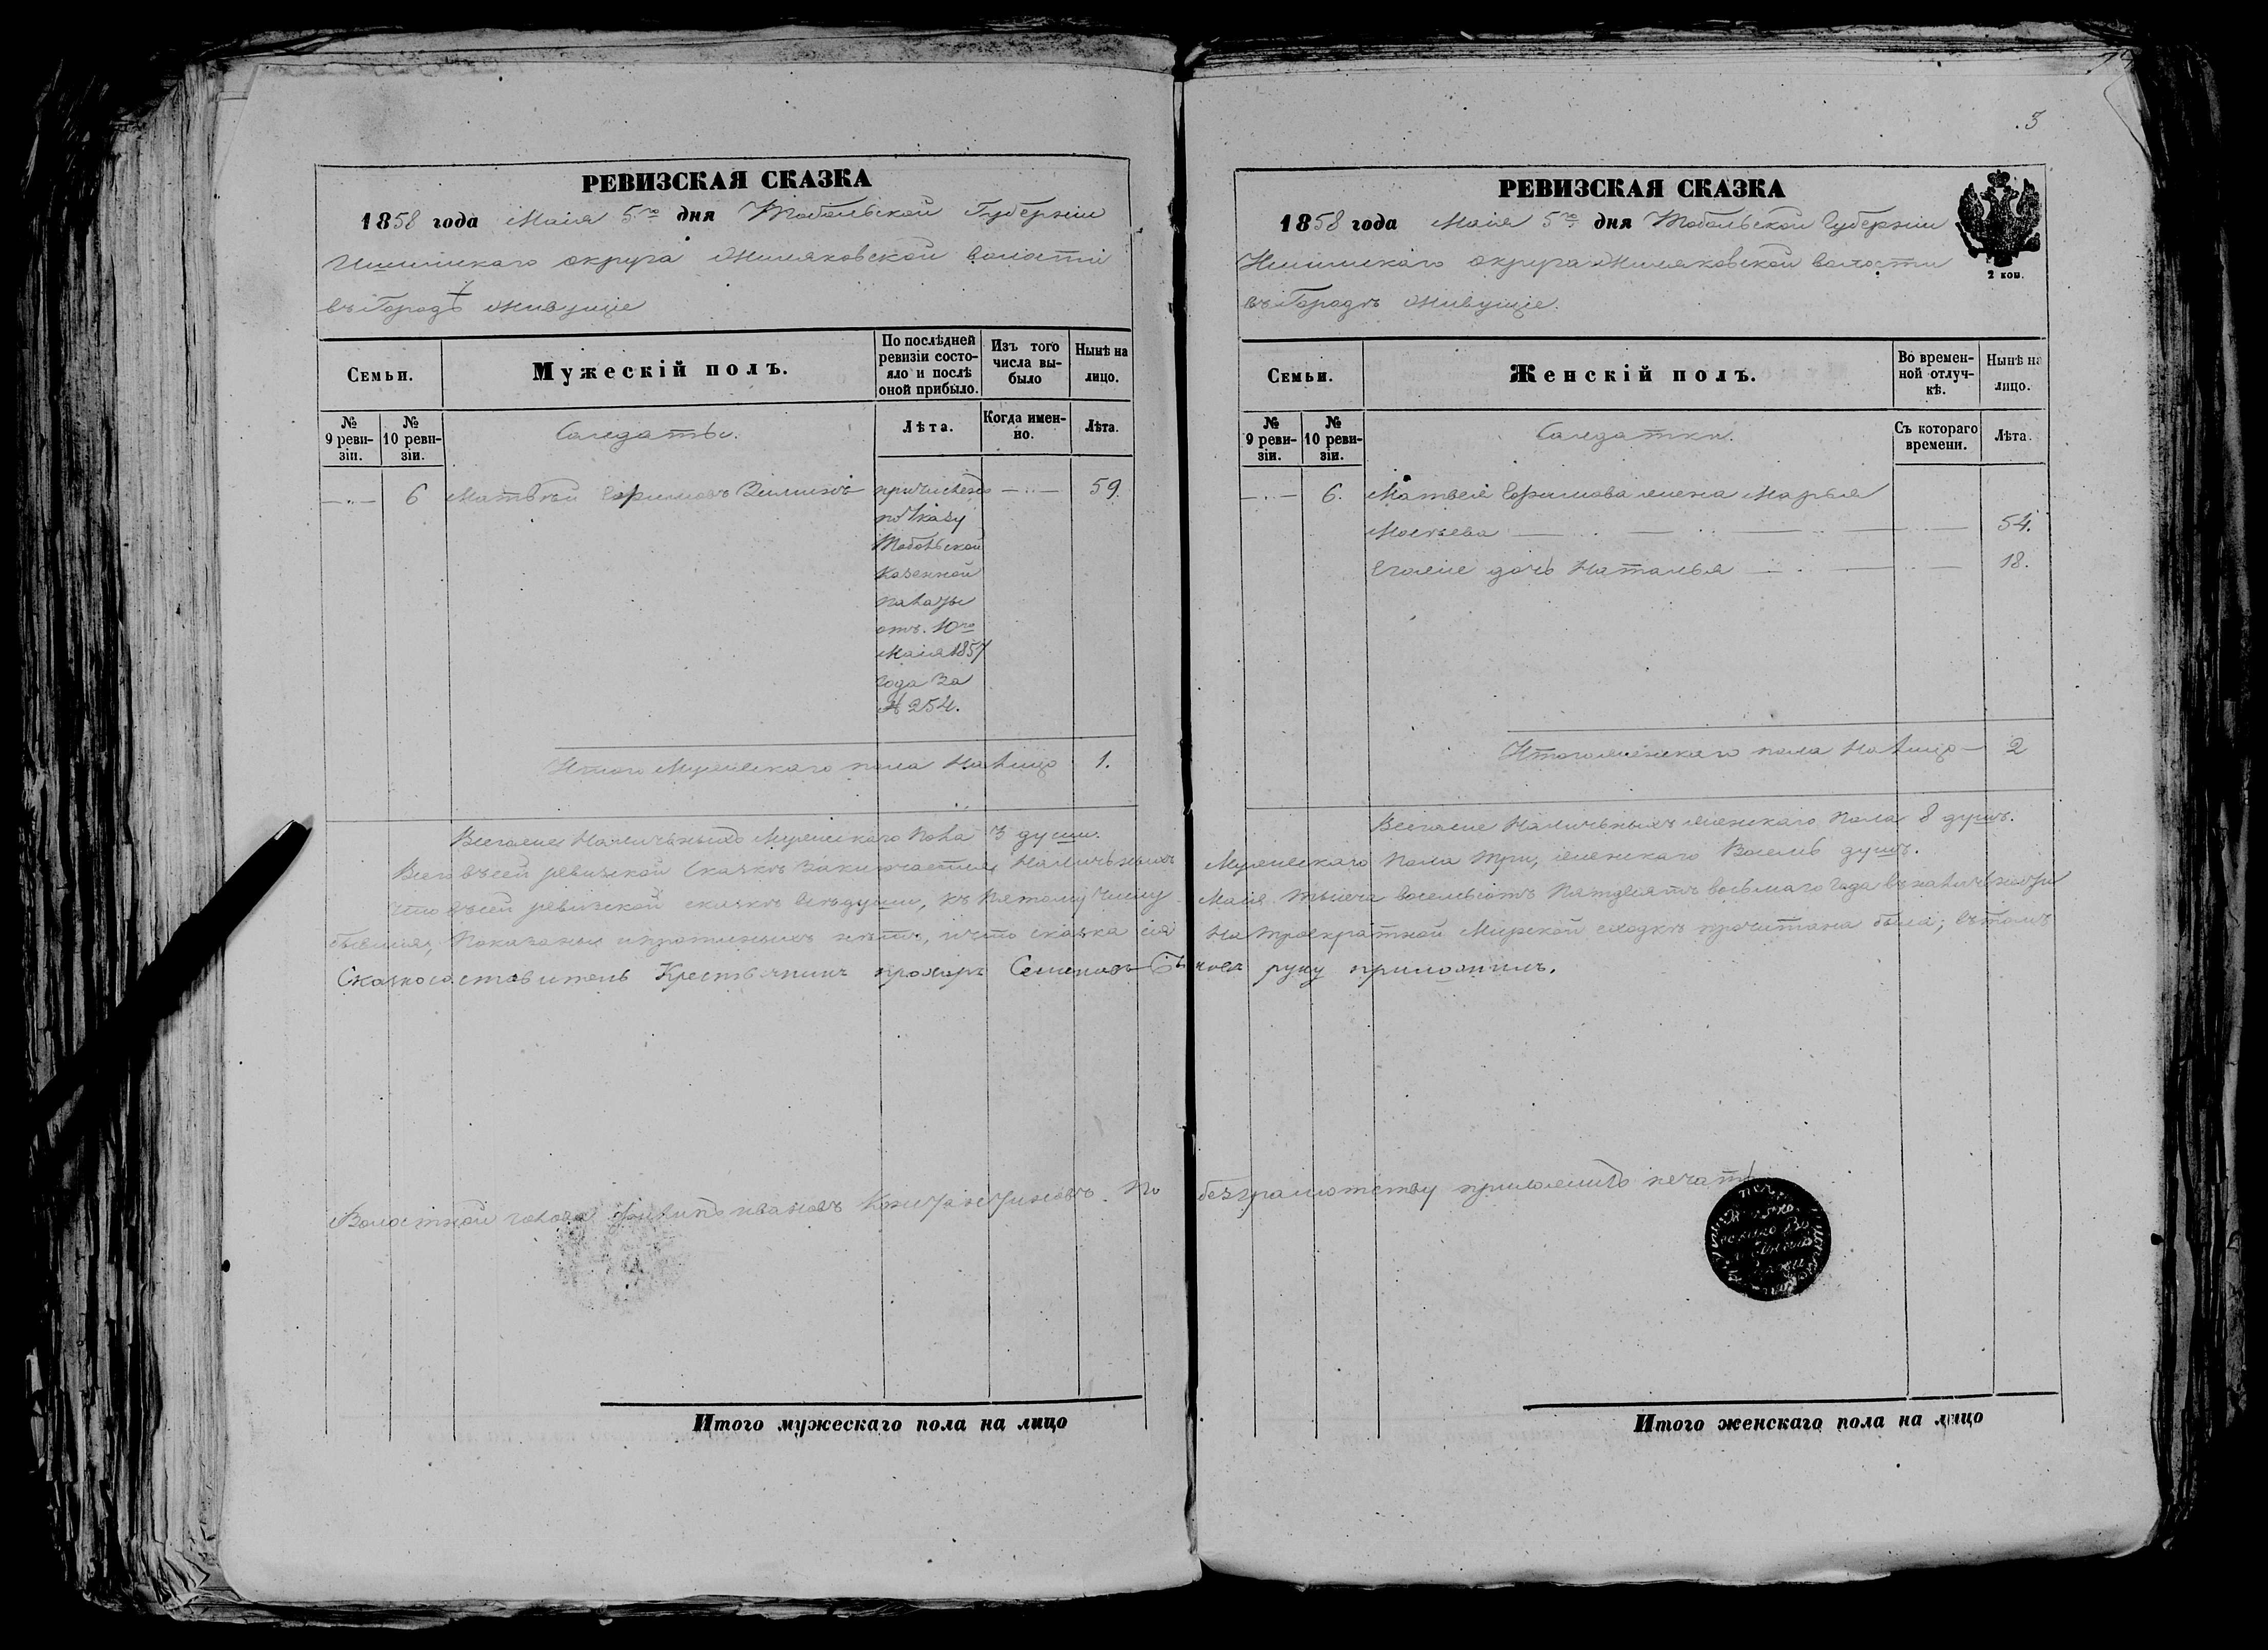 3
РЕВИЗСКАЯ СКАЗКА
1858 года Маiя 5го дня Тобольской Губернiи
Ишимскаго округа Жиляковской волости
въ Городѣ живущiе
Семьи.
Мужескiй полъ.
По послѣдней ревизiи состояло и послѣ оной прибыло.
Изъ того числа выбыло
Нынѣ на лицо.
№ 9 ревизiи.
№ 10 ревизiи.
Салдаты.
Лѣта.
Когда именно.
Лѣта.
6 Матвѣй Ефимовъ Зиминъ причисленъ 59.
по Указу
Тобольской
Казенной
палаты
отъ 10го
Маiя 1857
года за
№ 254.
Итого Мужескаго пола На лицо 1.
Всего же Наличныхъ Мужескаго пола 3 души.
Всего въ сей ревизской сказкѣ заключается Наличныхъ Мужескаго пола три, женскаго Восемь душъ.
Что въ сей ревизской сказкѣ всѣ души, къ пятому числу Маiя тысяча восемьсотъ пятдесятъ восьмаго года въ наличности
бывшiя, показаны и прописныхъ нѣтъ, и что сказка сiя на троекратной Мирской сходкѣ прочитана была; въ томъ
Сказкосоставитель Крестьянинъ прохоръ Семеновъ руку приложилъ.
Волостной голова Филипъ Ивановъ по безграмотству приложилъ печать
Итого мужескаго пола на лицо
РЕВИЗСКАЯ СКАЗКА
1858 года Маiя 5го дня Тобольской Губернiи
Ишимскаго округа Жиляковской волости
въ Городѣ живущiе.
2 коп.
Семьи.
Женскiй полъ.
Во временной отлучкѣ.
Нынѣ на лицо.
№ 9 ревизiи.
№ 10 ревизiи.
Салдатки.
Съ котораго времени.
Лѣта.
6. Матвея Ефимова жена Марья
Мосѣева 54.
Его же дочь Наталья 18.
Итого женскаго пола На лицо 2
Всего же Наличныхъ женскаго пола 8 душъ.
Итого женскаго пола на лицо